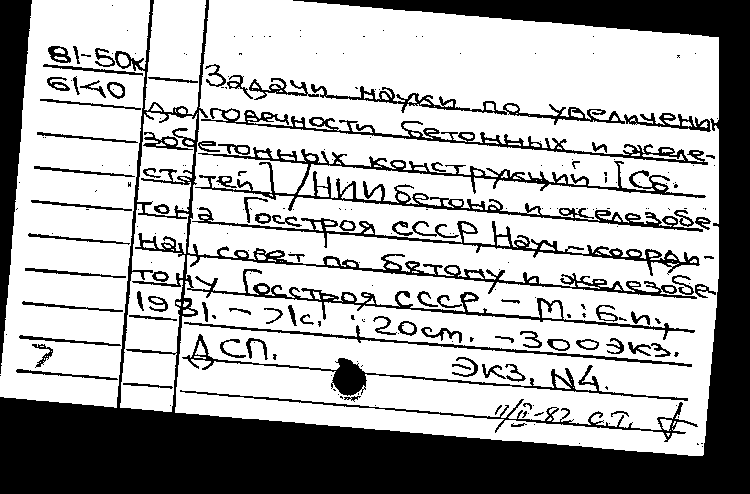 81-50к
61-40
Задачи науки по увеличению
долговечности бетонных и желе-
зобетонных конструкций: [Сб.
статей] / НИИ бетона и железобе-
тона Госстроя СССР, Науч.-коорди-
нац. совет по бетону и железобе-
тону Госстроя СССР. - М.: б.и.,
1981. - 71с. ; 20см. - 300 экз.
ДСП.
Экз. N4.
7
11/II-82 С.Т.